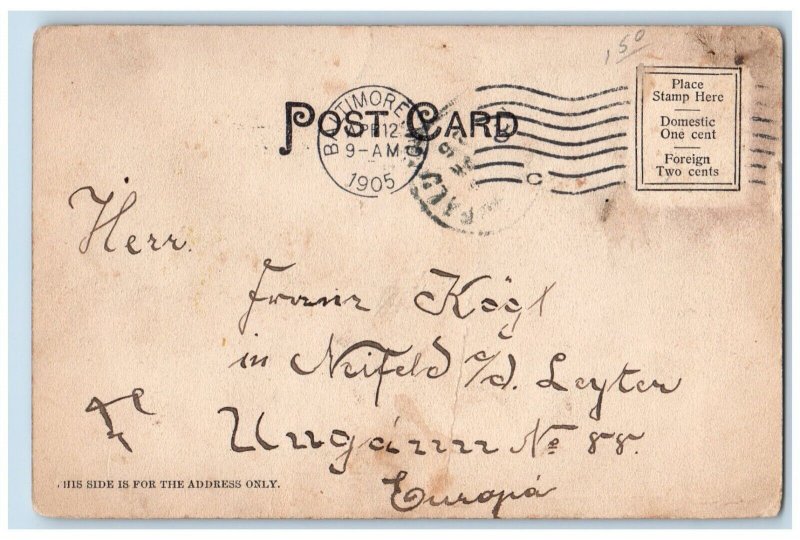 1 50
Place
Stamp Here
Domestic
One cent
Foreign
Two cents
POST CARD
BALTIMORE
APR 12
9-AM
1905
C
Herr.
Franz Kögl
in Neifeld a/d. Leyter
Ungarn No 88.
Europa
HIS SIDE IS FOR THE ADDRESS ONLY.